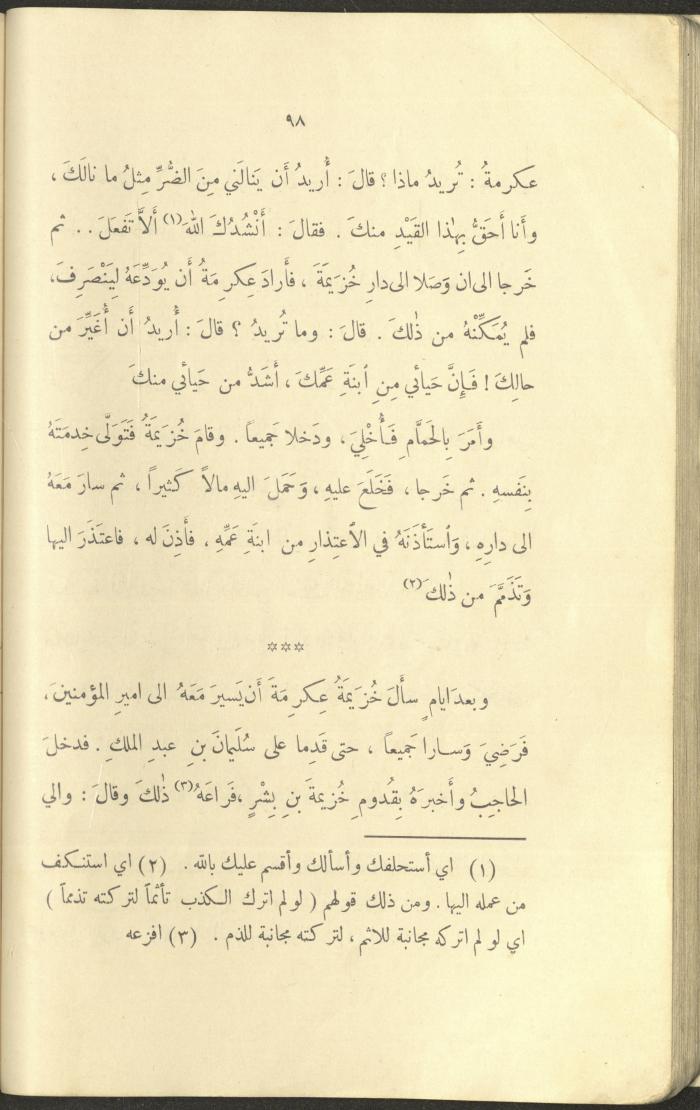 ٩٨
عكرمةُ : تُريدُ ماذا ؟ قالَ : أُريدُ أَن يَنالَني مِنَ الضُّرِّ مِثلُ ما نالَكَ ،
وأَنا أَحَقُّ بِهٰذا القَيْدِ منكَ . فقالَ : أَنْشُدُكَ اللهَ(١) أَلاَّ تَفعَلَ . . ثم
خَرجا الى ان وَصَلا الى دارِ خُزَيمَةَ ، فَأَرادَ عِكرِمَةُ أَن يُوَدِّعَهُ لِيَنْصَرِفَ،
فلم يُمَكِّنْهُ من ذٰلكَ . قالَ : وما تُريدُ ؟ قالَ : أُريدُ أَن أُغَيِّرَ من
حالِكَ ! فَإِنَّ حَيائي مِنِ ٱبنَةِ عَمِّكَ ، أَشَدُّ من حَيائي منكَ
وأَمَرَ بِالحَمَّامِ فَأُخْلِيَ ، ودَخلا جَميعاً . وقامَ خُزَيمَةُ فَتَوَلَّى خِدمَتَهُ
بِنَفسهِ . ثم خَرجا ، فَخَلَعَ عليهِ ، وَحَمَلَ اليهِ مالاً كَثيراً ، ثم سارَ مَعَهُ
الى دارِهِ ، وَٱستَأذَنَهُ في الاَّعتِذارِ من ابنَةِ عَمِّهِ ، فأَذِنَ له ، فاعتَذَرَ اليها
وَتَذَمَّمَ من ذٰلكَ (٢)
***
وبعدَ ايامٍ سأَلَ خُزَيمَةُ عِكرِمَةَ أَن يَسيرَ مَعَهُ الى اميرِ المؤمنينَ،
فَرَضِيَ وَسارا جَميعاً ، حتى قَدِما على سُلَيمانَ بنِ عبدِ الملكِ . فدخلَ
الحاجِبُ وأَخبرَهُ بِقُدومِ خُزيمةَ بنِ بِشْرٍ ، فَراعَهُ(٣) ذٰلكَ وقالَ : والي
(١) اي أستحلفك وأسألك وأقسم عليك بالله . (٢) اي استنكف
من عمله اليها . ومن ذلك قولهم ( لو لم اترك الكذب تأثماً لتركته تذمماً )
اي لو لم اتركه مجانبة للاثم ، لتركته مجانبة للذم . (٣) افزعه